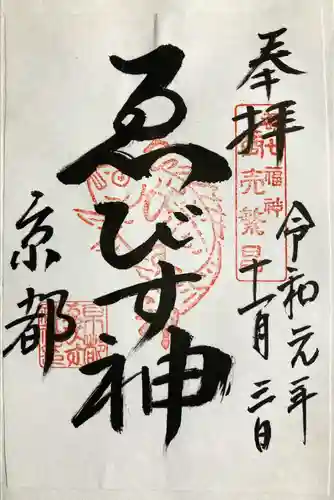 奉拝
七福神
商売繁昌
令和元年
十一月三日
ゑびす神
京都